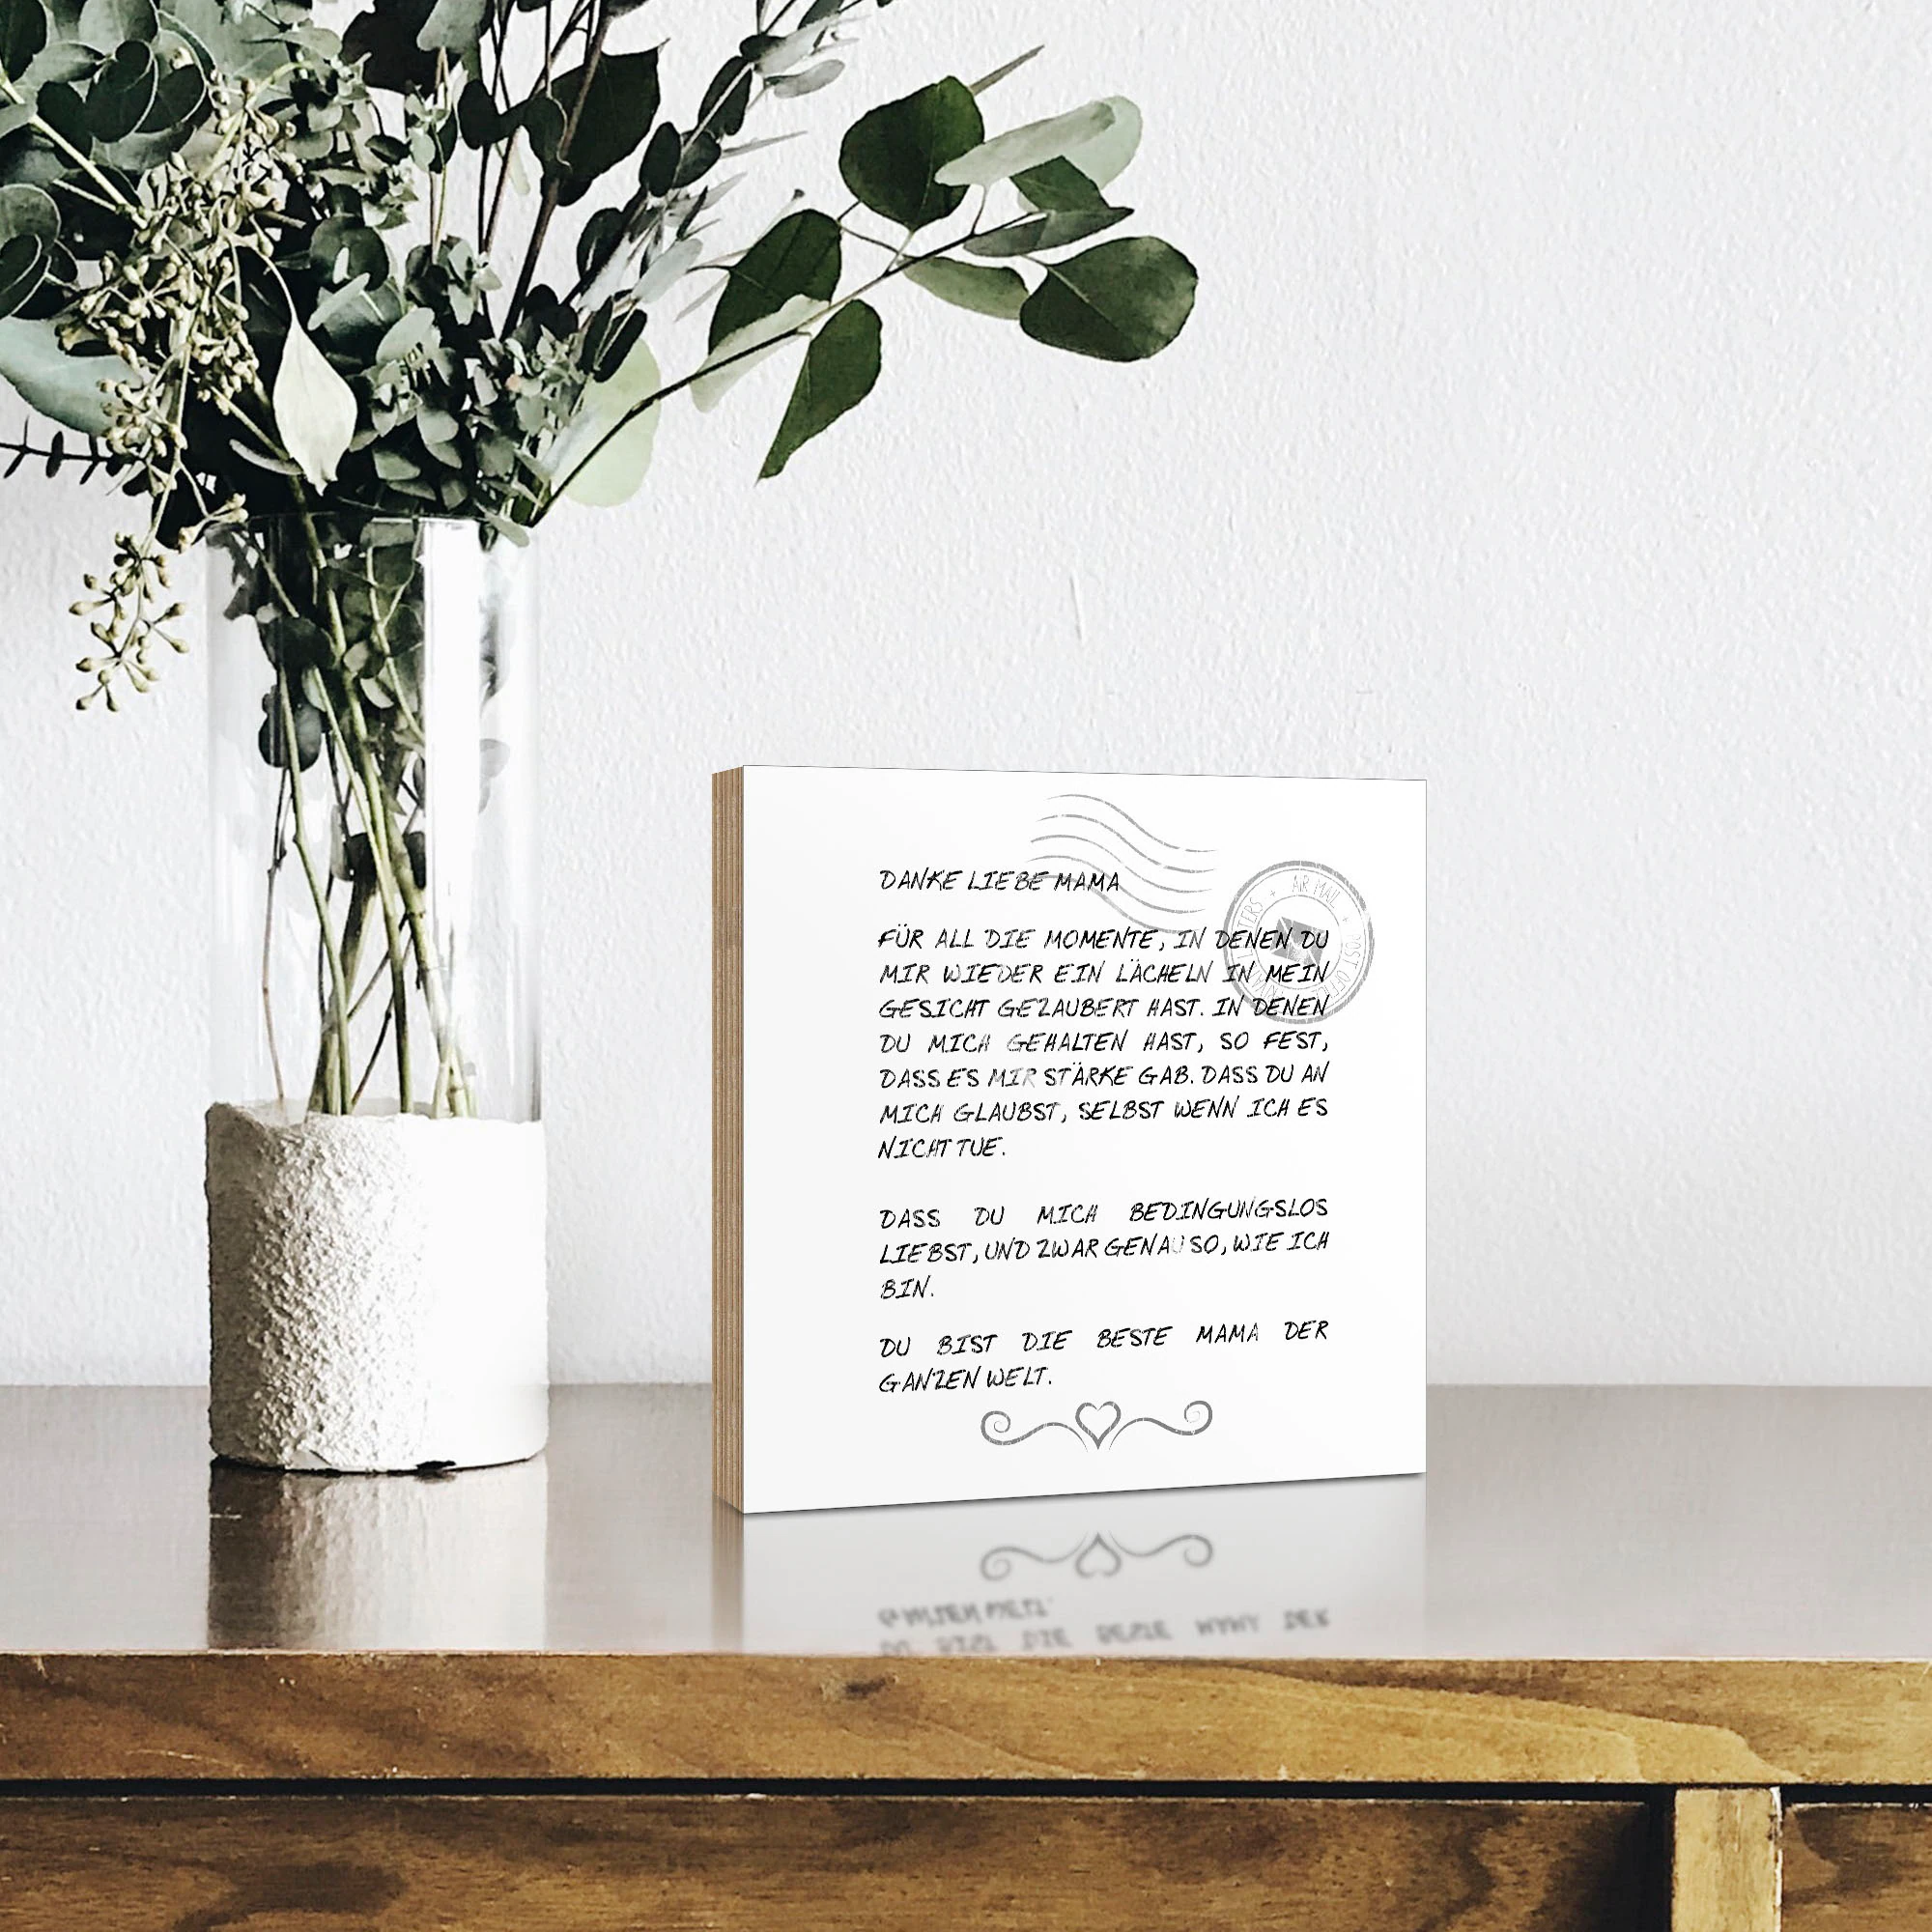 DANKE LIEBE MAMA
FÜR ALL DIE MOMENTE, IN DENEN DU
MIR WIEDER EIN LÄCHELN IN MEIN
GESICHT GEZAUBERT HAST. IN DENEN
DU MICH GEHALTEN HAST, SO FEST,
DASS ES MIR STÄRKE GAB. DASS DU AN
MICH GLAUBST, SELBST WENN ICH ES
NICHT TUE.
DASS DU MICH BEDINGUNGSLOS
LIEBST, UND ZWAR GENAU SO, WIE ICH
BIN.
DU BIST DIE BESTE MAMA DER
GANZEN WELT.
AR MAIL